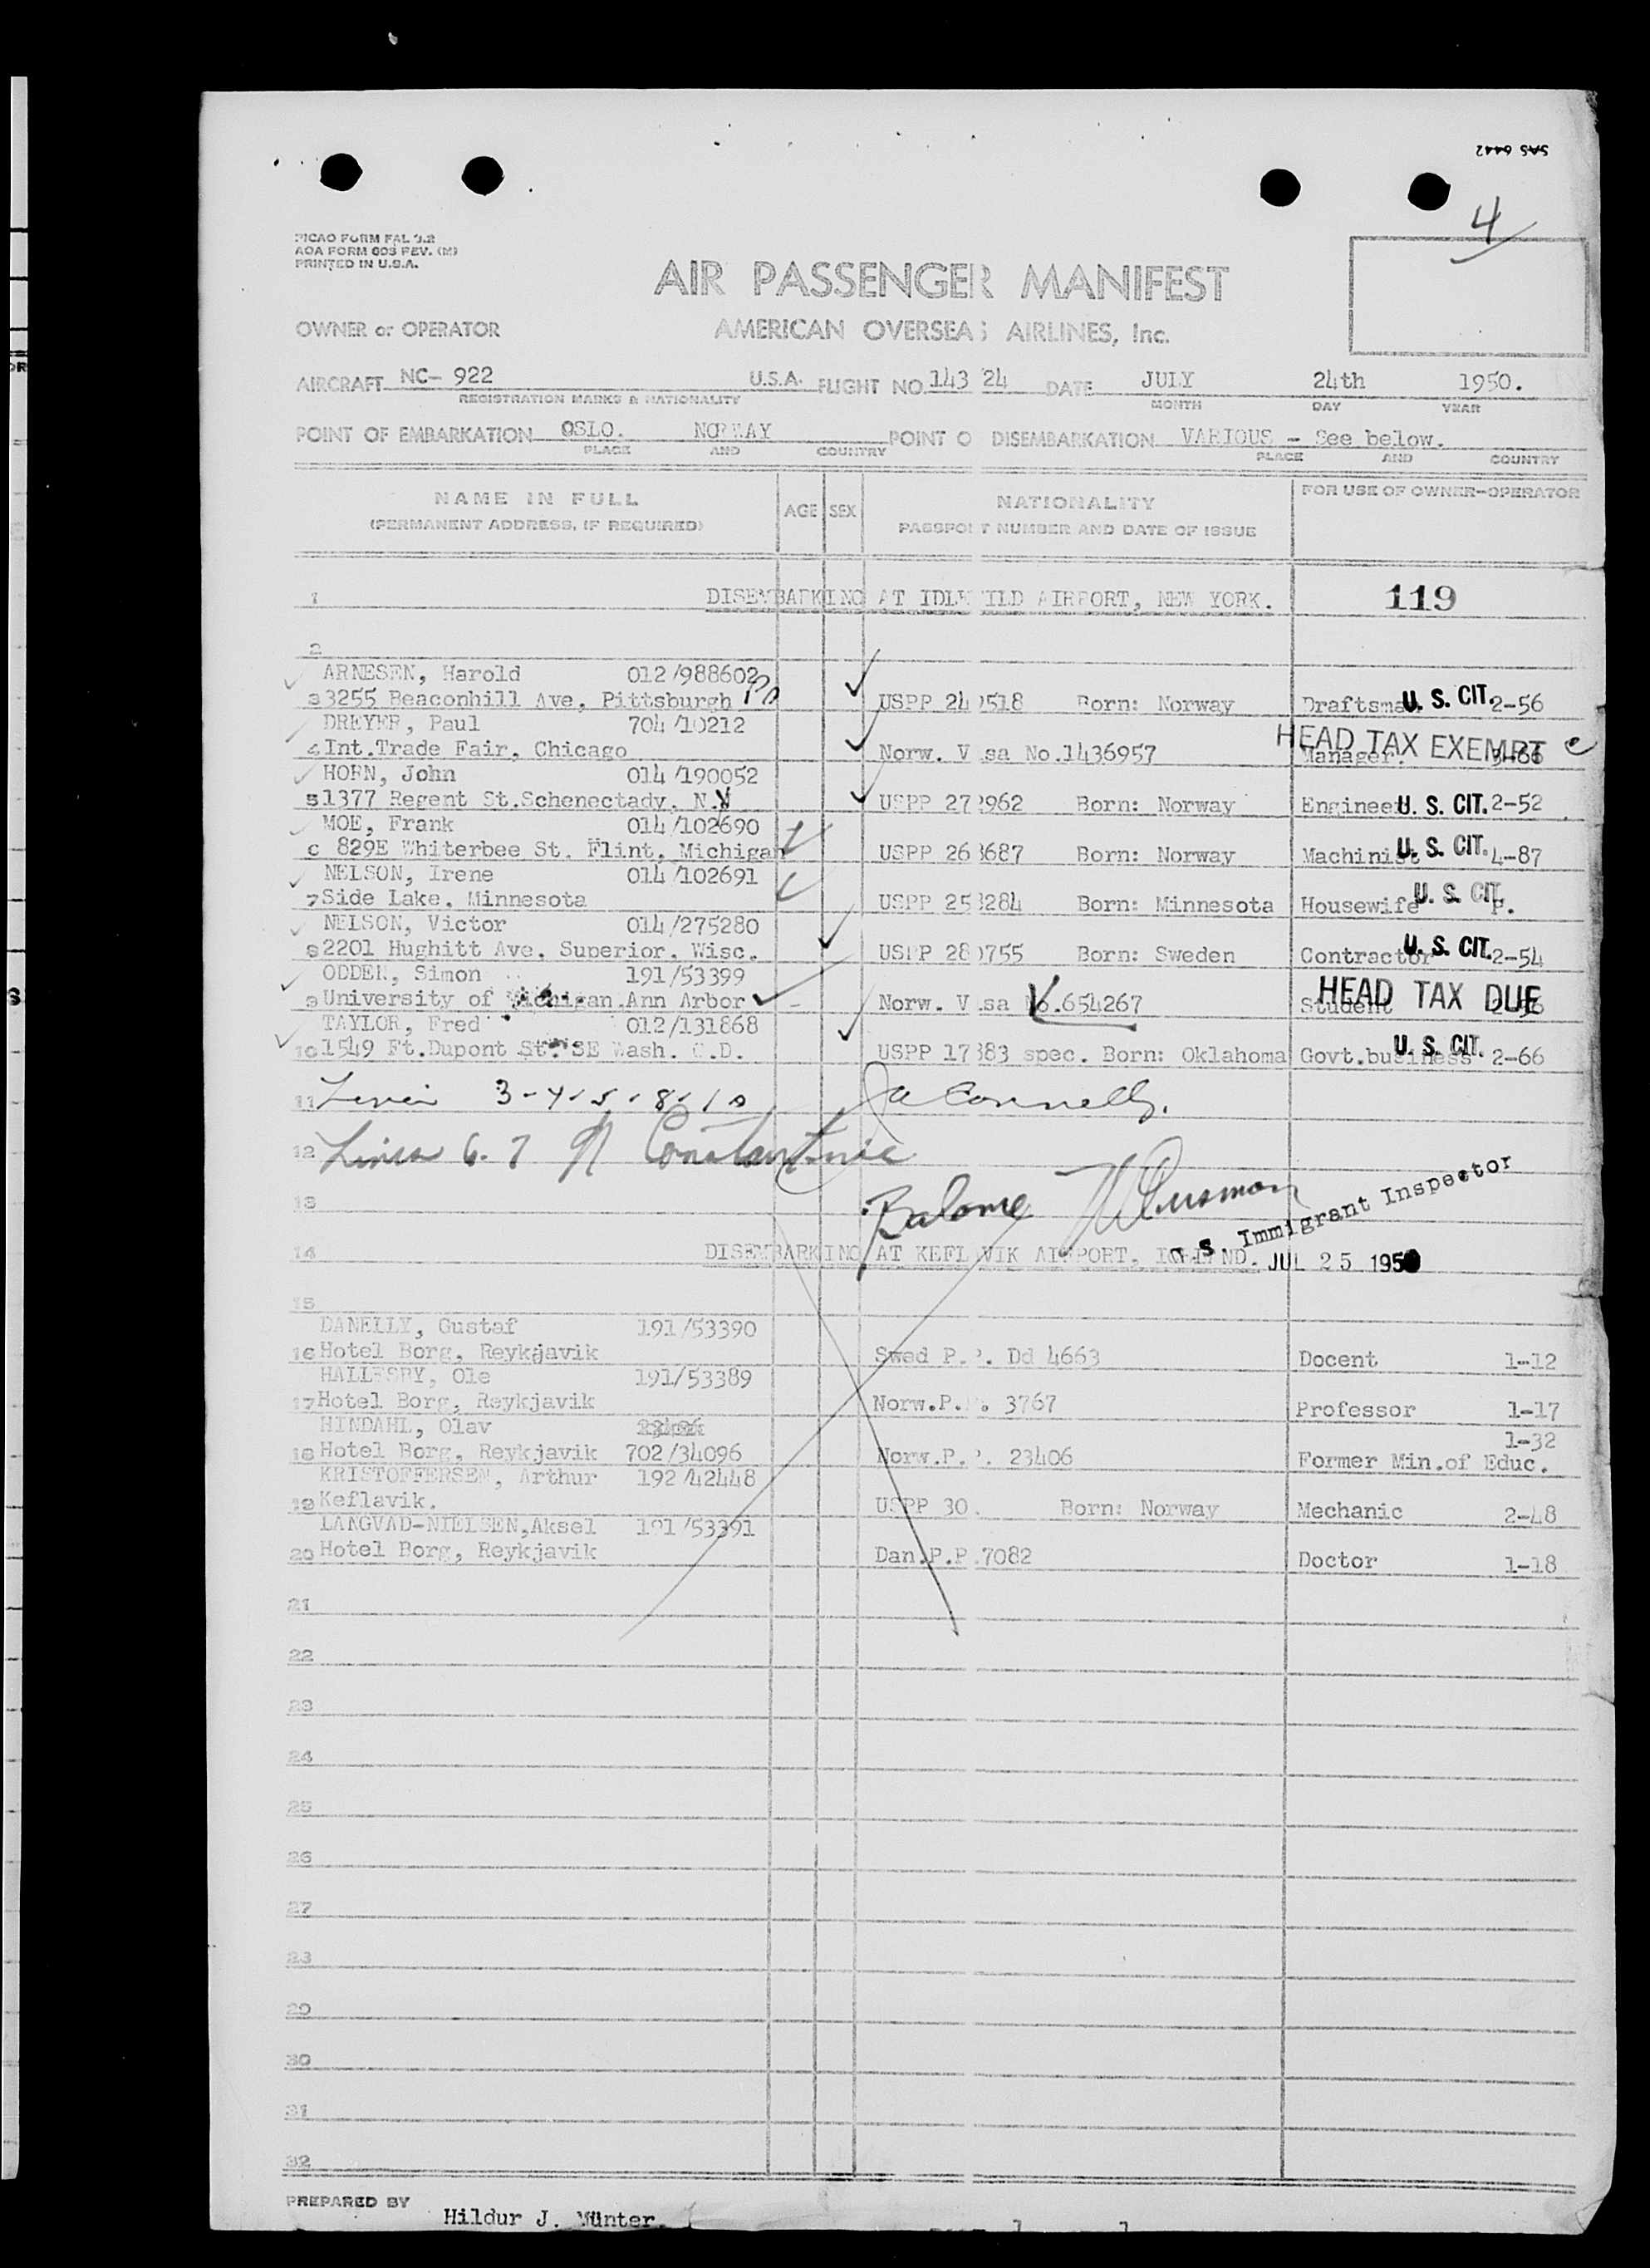 SAS 6442
4
PICAO FORM FAL 3.2
AOA FORM 603 REV. (M)
PRINTED IN U.S.A.
AIR PASSENGER MANIFEST
OWNER or OPERATOR AMERICAN OVERSEAS AIRLINES, Inc.
AIRCRAFT NC- 922 U.S.A. FLIGHT NO 143 24 DATE JULY 24th 1950.
REGISTRATION MARKS & NATIONALITY MONTH DAY YEAR
POINT OF EMBARKATION OSLO. NORWAY POINT O DISEMBARKATION VARIOUS - See below.
PLACE AND COUNTRY PLACE AND COUNTRY
NAME IN FULL AGE SEX NATIONALITY FOR USE OF OWNER-OPERATOR
(PERMANENT ADDRESS, IF REQUIRED) PASSPORT NUMBER AND DATE OF ISSUE
1 DISEMBARKING AT IDLEWILD AIRPORT, NEW YORK. 119
2
ARNESEN, Harold 012/988602
3 3255 Beaconhill Ave, Pittsburgh Pa USPP 24 518 Born: Norway Draftsma U. S. CIT. 2-56
DREYER, Paul 704/10212
4 Int.Trade Fair, Chicago Norw. V sa No.1436957 Manager. HEAD TAX EXEMPT
HORN, John 014/190052
5 1377 Regent St.Schenectady, N.Y USPP 27 962 Born: Norway Engineer U. S. CIT. 2-52
MOE, Frank 014/102690
829E Whiterbee St. Flint, Michigan USPP 26 687 Born: Norway Machinist U. S. CIT. 4-87
NELSON, Irene 014/102691
7 Side Lake, Minnesota USPP 25 284 Born: Minnesota Housewife U. S. CIT. F.
NELSON, Victor 014/275280
8 2201 Hughitt Ave, Superior, Wisc. USPP 28 755 Born: Sweden Contractor U. S. CIT. 2-54
ODDEN, Simon 191/53399
9 University of Michigan.Ann Arbor Norw. V sa No.654267 Student HEAD TAX DUE
TAYLOR, Fred 012/131868
10 1549 Ft.Dupont St. SE Wash. D.D. USPP 17 383 spec. Born: Oklahoma Govt.business U. S. CIT. 2-66
11 3-4-5-8-10 Connelly.
12 Lines 6-7
13 Balance
U S Immigrant Inspector
14 DISEMBARKING AT KEFLAVIK AIRPORT, ICELAND. JUL 25 1950
15
DANELLY, Gustaf 191/53390
16 Hotel Borg, Reykjavik Swed P.P. Dd 4663 Docent 1-12
HALLESBY, Ole 191/53389
17 Hotel Borg, Reykjavik Norw.P. . 3767 Professor 1-17
HINDAHL, Olav 1-32
18 Hotel Borg, Reykjavik 702/34096 Norw.P.P. 23406 Former Min.of Educ.
KRISTOFFERSEN, Arthur 192/42448
19 Keflavik. USPP 30. Born: Norway Mechanic 2-48
LANGVAD-NIELSEN,Aksel 191/53391
20 Hotel Borg, Reykjavik Dan.P.P 7082 Doctor 1-18
21
22
23
24
25
26
27
28
29
30
31
32
PREPARED BY Hildur J. Münter.